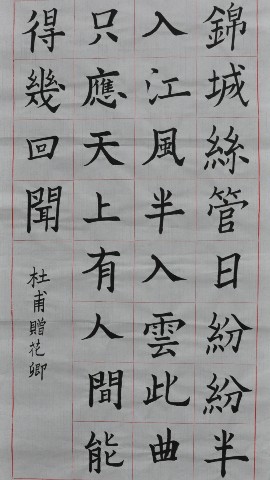 錦城絲管日紛紛半
入江風半入雲此曲
只應天上有人間能
得幾回聞
杜甫贈花卿